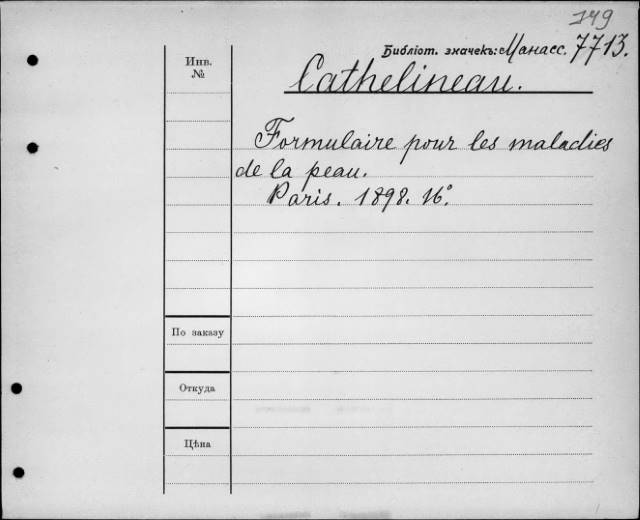 149
Библіот. значекъ: Манасс. 7713.
Инв.
№
Cathelineau.
Formulaire pour les maladies
de la peau.
Paris. 1898. 16°.
По заказу
Откуда
Цѣна